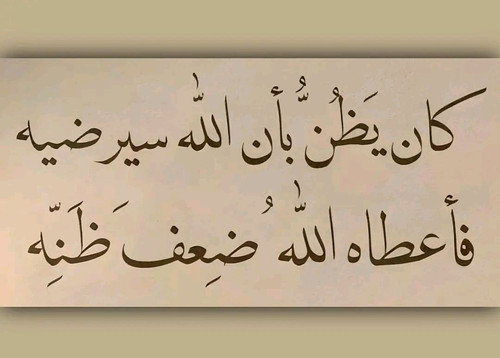 كان يَظُنُّ بأن الله سيرضيه
فأعطاه اللهُ ضِعفَ ظَنِّه